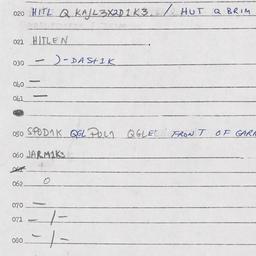 020 HITL Q KAJL3X2D1K3. / HUT Q BRIM
021 HITLEN
030 — )-DASH1K
040 —
041 —
050 SPOD1K QGL POL1 QGLE FRONT OF GARM
060 JARM1K3
062 O
070 —
071 — /—
080 — /—